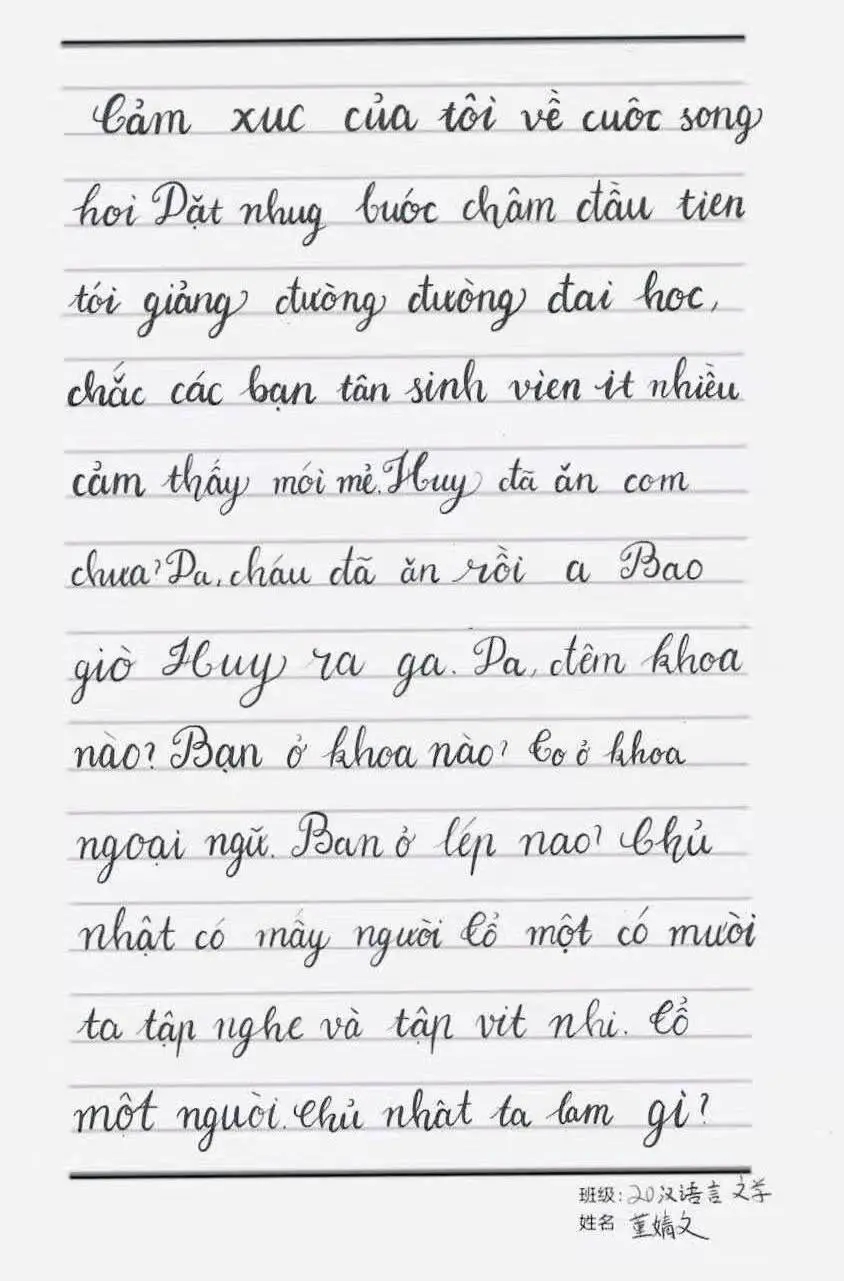 Cảm xuc của tôi về cuôc song
hoi Dặt nhug buớc châm đầu tien
tói giảng đường đường đai hoc,
chắc các bạn tân sinh vien it nhiều
cảm thấy mói mẻ. Huy đã ăn com
chưa? Da, cháu đã ăn rồi a Bao
giờ Huy ra ga. Da, đêm khoa
nào? Bạn ở khoa nào? Co ở khoa
ngoại ngữ. Ban ở lép nao? Chủ
nhật có mấy người Cổ một có mười
ta tập nghe và tập vit nhi. Cổ
một nguòi. Chủ nhât ta lam gì?
班级: 20汉语言文学
姓名 董婧文